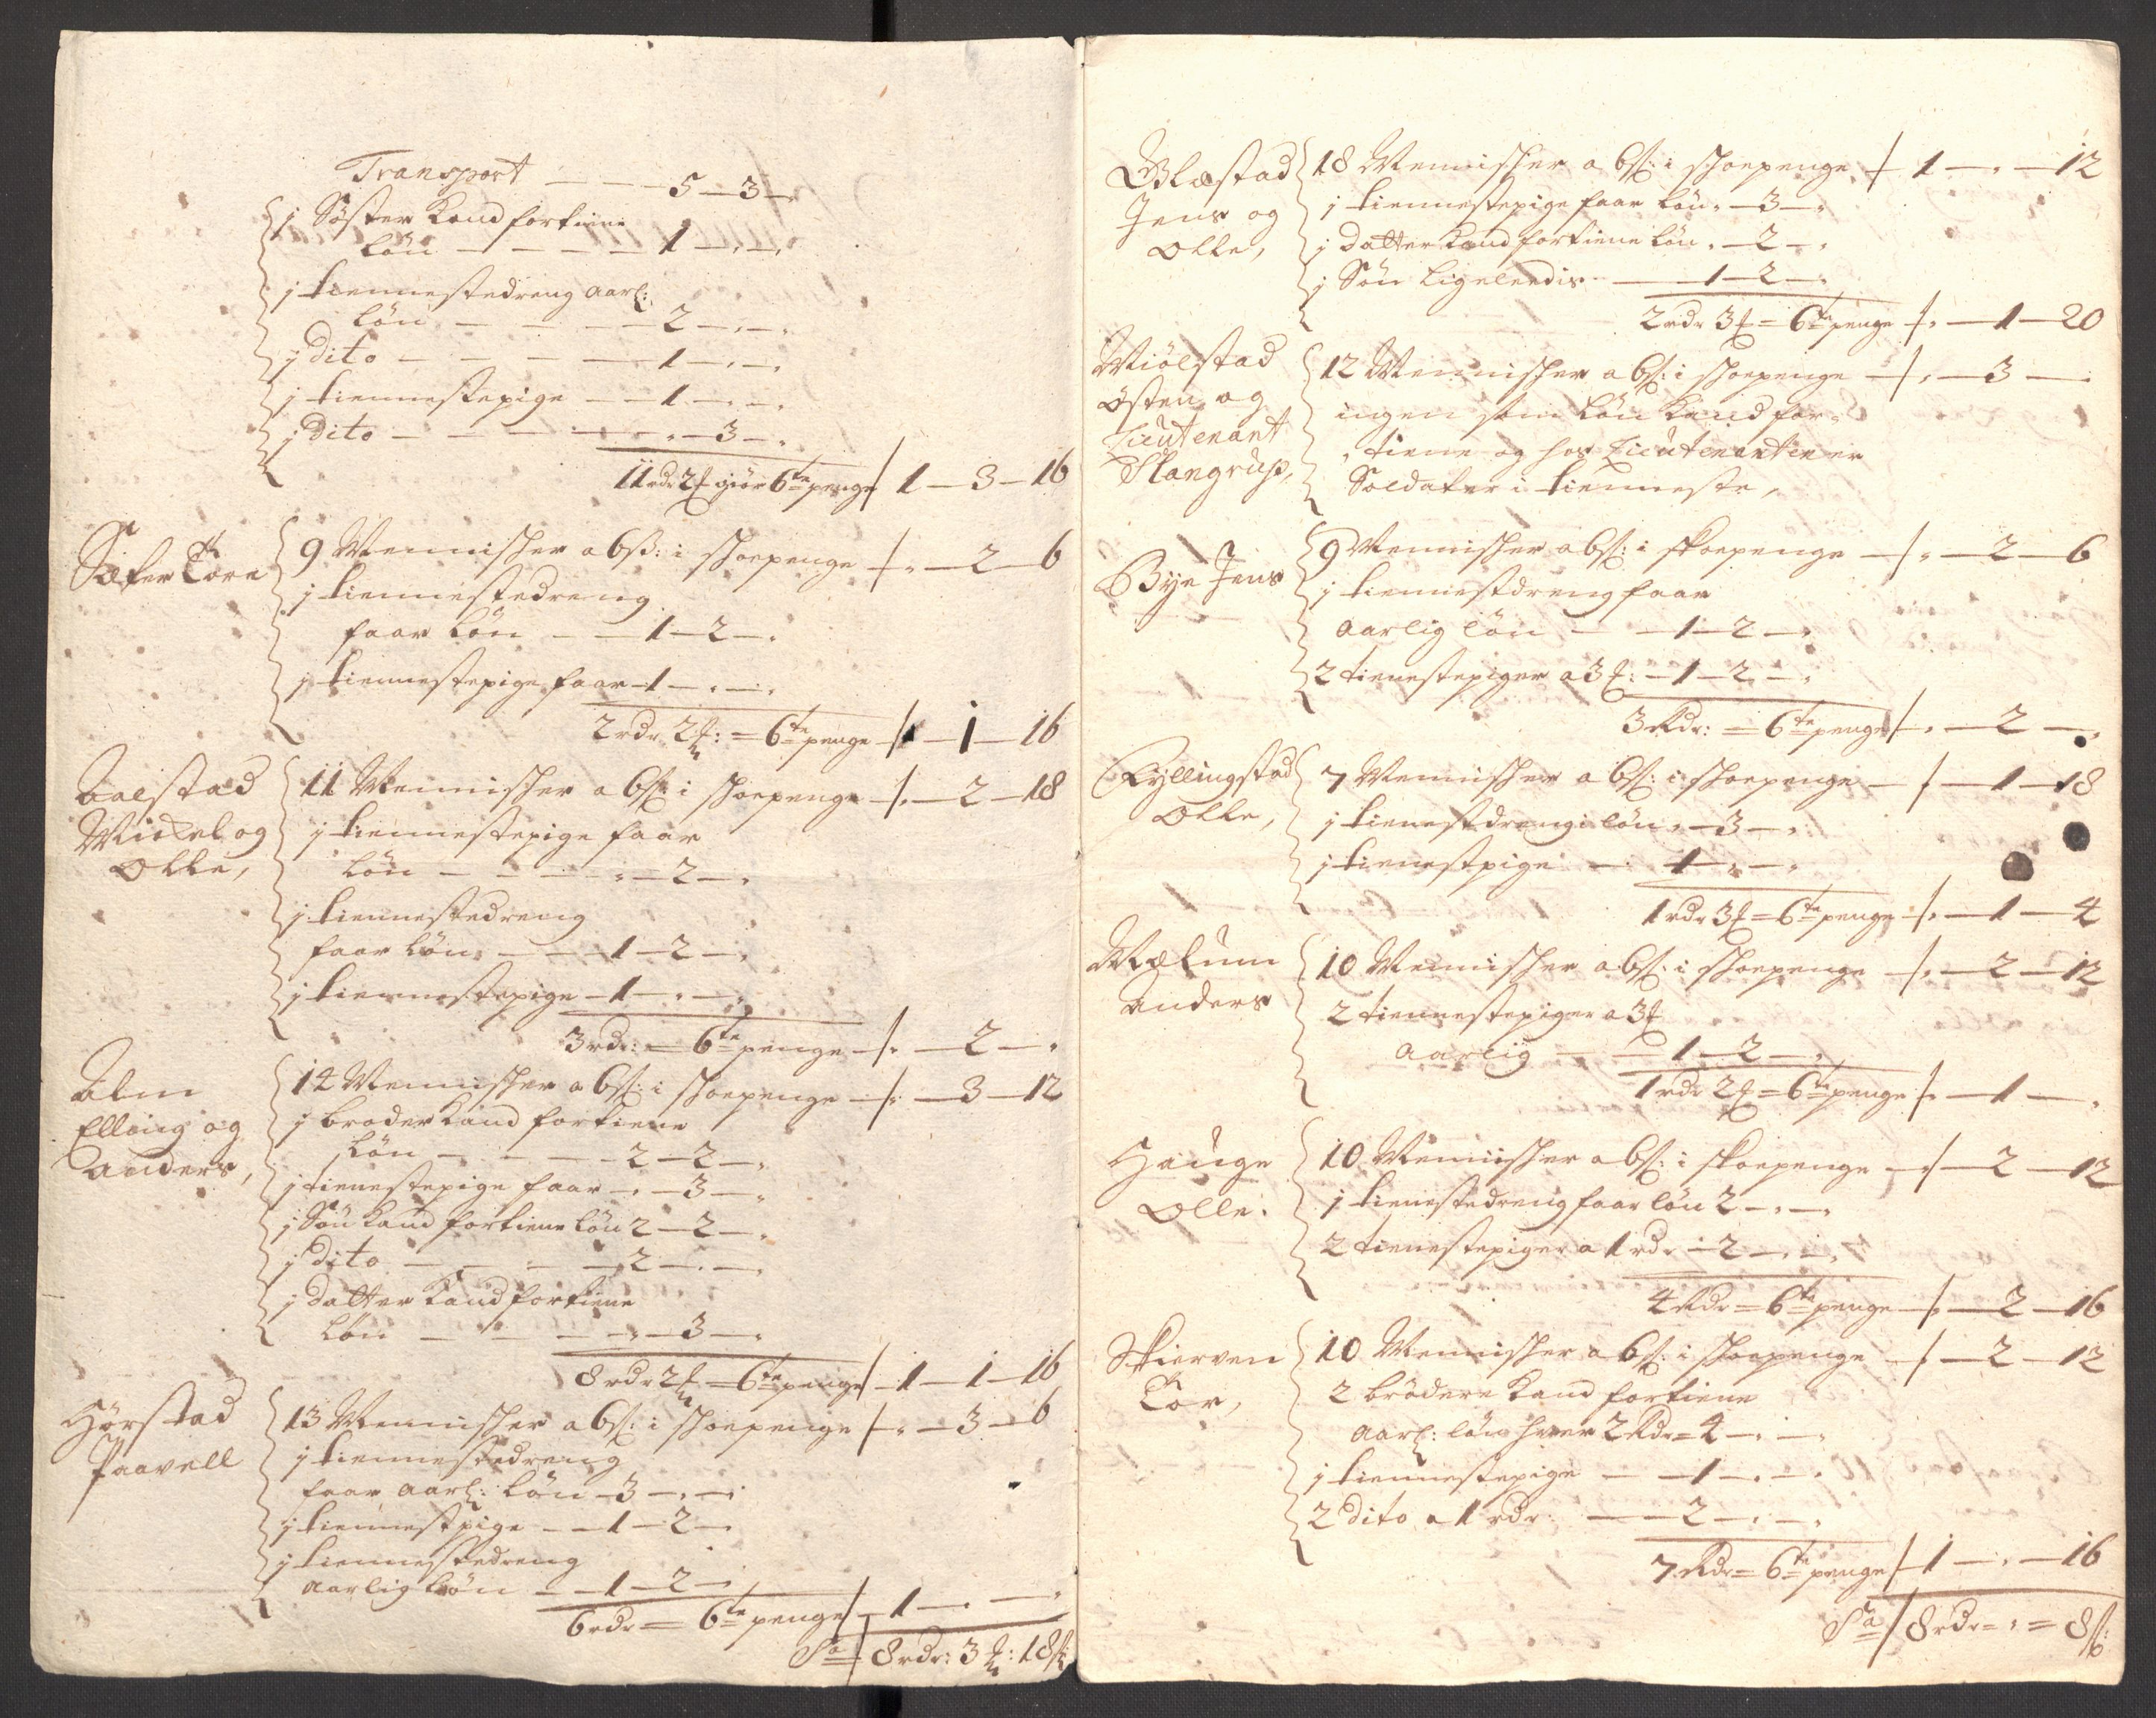 Transport — — 5 — 3 — „
j Søster kand fortiene
løn — — — — 1 — „ — „
j tiennestedreng aarl:
løn — — — — 2 — „ — „
j dito — — — — 1 — „ — „
j tiennestepige — — 1 — „ — „
j dito — — — — „ — 3 — „
11 rdr 2 ʄ giør 6te penge 1 — 3 — 16
Sæter Tore
9 Mennisher a 6 sk: i shoepenge „ — 2 — 6
j tiennestedreng
faar løn — — 1 — 2 — „
j tiennestepige faar 1 — „ — „
2 rdr 2 ʄ: = 6te penge — 1 — 16
Aalstad
Mickel og
Olle,
11 Mennisher a 6 sk: i shoepenge „ — 2 — 18
j tiennestepige faar
løn — — — „ — 2 — „
j tiennestedreng
faar løn — — 1 — 2 — „
j tiennestepige — 1 — „ — „
3 rdr: = 6te penge „ — 2 — „
Alm
Elling og
Anders,
14 Mennisher a 6 sk: i shoepenge „ — 3 — 12
j broder kand fortiene
løn — — — 2 — 2 — „
j tienestepige faar „ — 3 — „
j Søn kand fortiene løn 2 — 2 — „
j dito — — — 2 — „ — „
j datter kand fortiene
løn — — — „ — 3 — „
8 rdr 2 ʄ = 6te penge 1 — 1 — 16
Hørstad
Paavell
13 Mennisher a 6 sk: i shoepenge „ — 3 — 6
j tiennestedreng
faar aarl: løn 3 — „ — „
j tiennestpige — — 1 — 2 — „
j tiennestedreng
aarlig løn — — 1 — 2 — „
6 rdr = 6te penge 1 — „ — „
Sa 8 rdr: 3 ʄ: 18 sk
Blæstad
Jens og
Olle,
18 Mennisher a 6 sk: i shoepenge 1 — „ — 12
j tiennestepige faar løn „ — 3 — „
j datter kand fortiene løn „ — 2 — „
j Søn ligeleedis — 1 — 2 — „
2 rdr 3 ʄ = 6te penge „ — 1 — 20
Miølstad
Østen og
Lieutenant
Slangrup,
12 Mennisher a 6 sk: i shoepenge „ — 3 — „
ingen som løn kand for-
tiene og hos Lieutenanten er
Soldater i tienneste,
Bye Jens
9 Mennisher a 6 sk: i skoepenge „ — 2 — 6
j tiennestdreng faar
aarlig løn — — 1 — 2 — „
2 tienestepiger a 3 ʄ: — 1 — 2 — „
3 Rdr: = 6te penge „ — 2 — „
Kyllingstad
Olle,
7 Mennisher a 6 sk: i shoepenge — 1 — 18
j tienestdreng i løn „ — 3 — „
j tienestpige — 1 — „ — „
1 rdr 3 ʄ = 6te penge „ — 1 — 4
Mælum
Anders
10 Mennisher a 6 sk: i shoepenge „ — 2 — 12
2 tiennestepiger a 3 ʄ
aarlig — — 1 — 2 — „
1 rdr 2 ʄ = 6te penge „ — 1 — „
Hauge
Olle.
10 Mennisher a 6 sk: i skoepenge — 2 — 12
j tienestedreng faar løn 2 — „ — „
2 tienestepiger a 1 rdr — 2 — „ — „
4 Rdr = 6te penge „ — 2 — 16
Skierven
Tor,
10 Mennisher a 6 sk: i shoepenge — 2 — 12
2 brødere kand fortiene
aarl: løn hver 2 Rdr = 4 — „ — „
j tiennestepige — — 1 — „ — „
2 dito a 1 rdr. — — 2 — „ — „
7 Rdr = 6te penge 1 — „ — 16
Sa 8 rdr = „ = 8 sk: